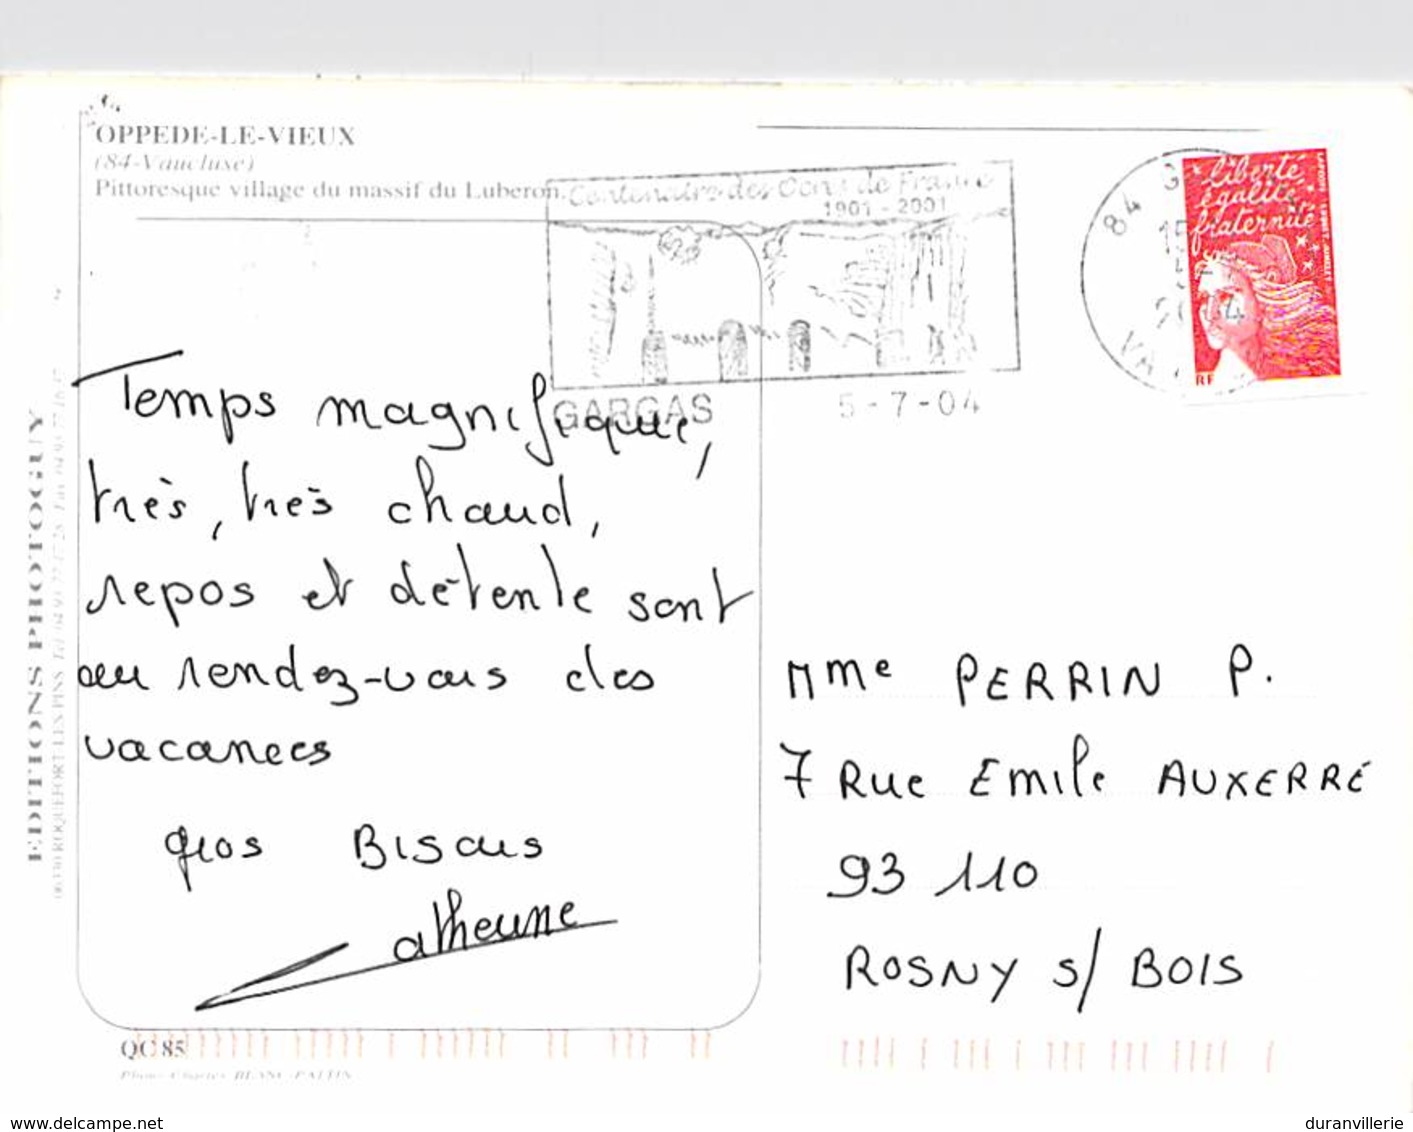 OPPEDE-LE-VIEUX
(84-Vaucluse)
Pittoresque village du massif du Luberon.
Centenaire des Ocres de France
1901 - 2001
GARGAS
5-7-04
84
liberté
égalité
fraternité
RF
Temps magnifique,
très, très chaud,
repos et détente sont
au rendez-vous des
vacances
gros Bisous
Catherine
Mme PERRIN P.
7 Rue Emile AUXERRE
93 110
ROSNY s/ BOIS
EDITIONS PHOTOGUY
06330 ROQUEFORT-LES-PINS
QC 85
www.delcampe.net
duranvillerie